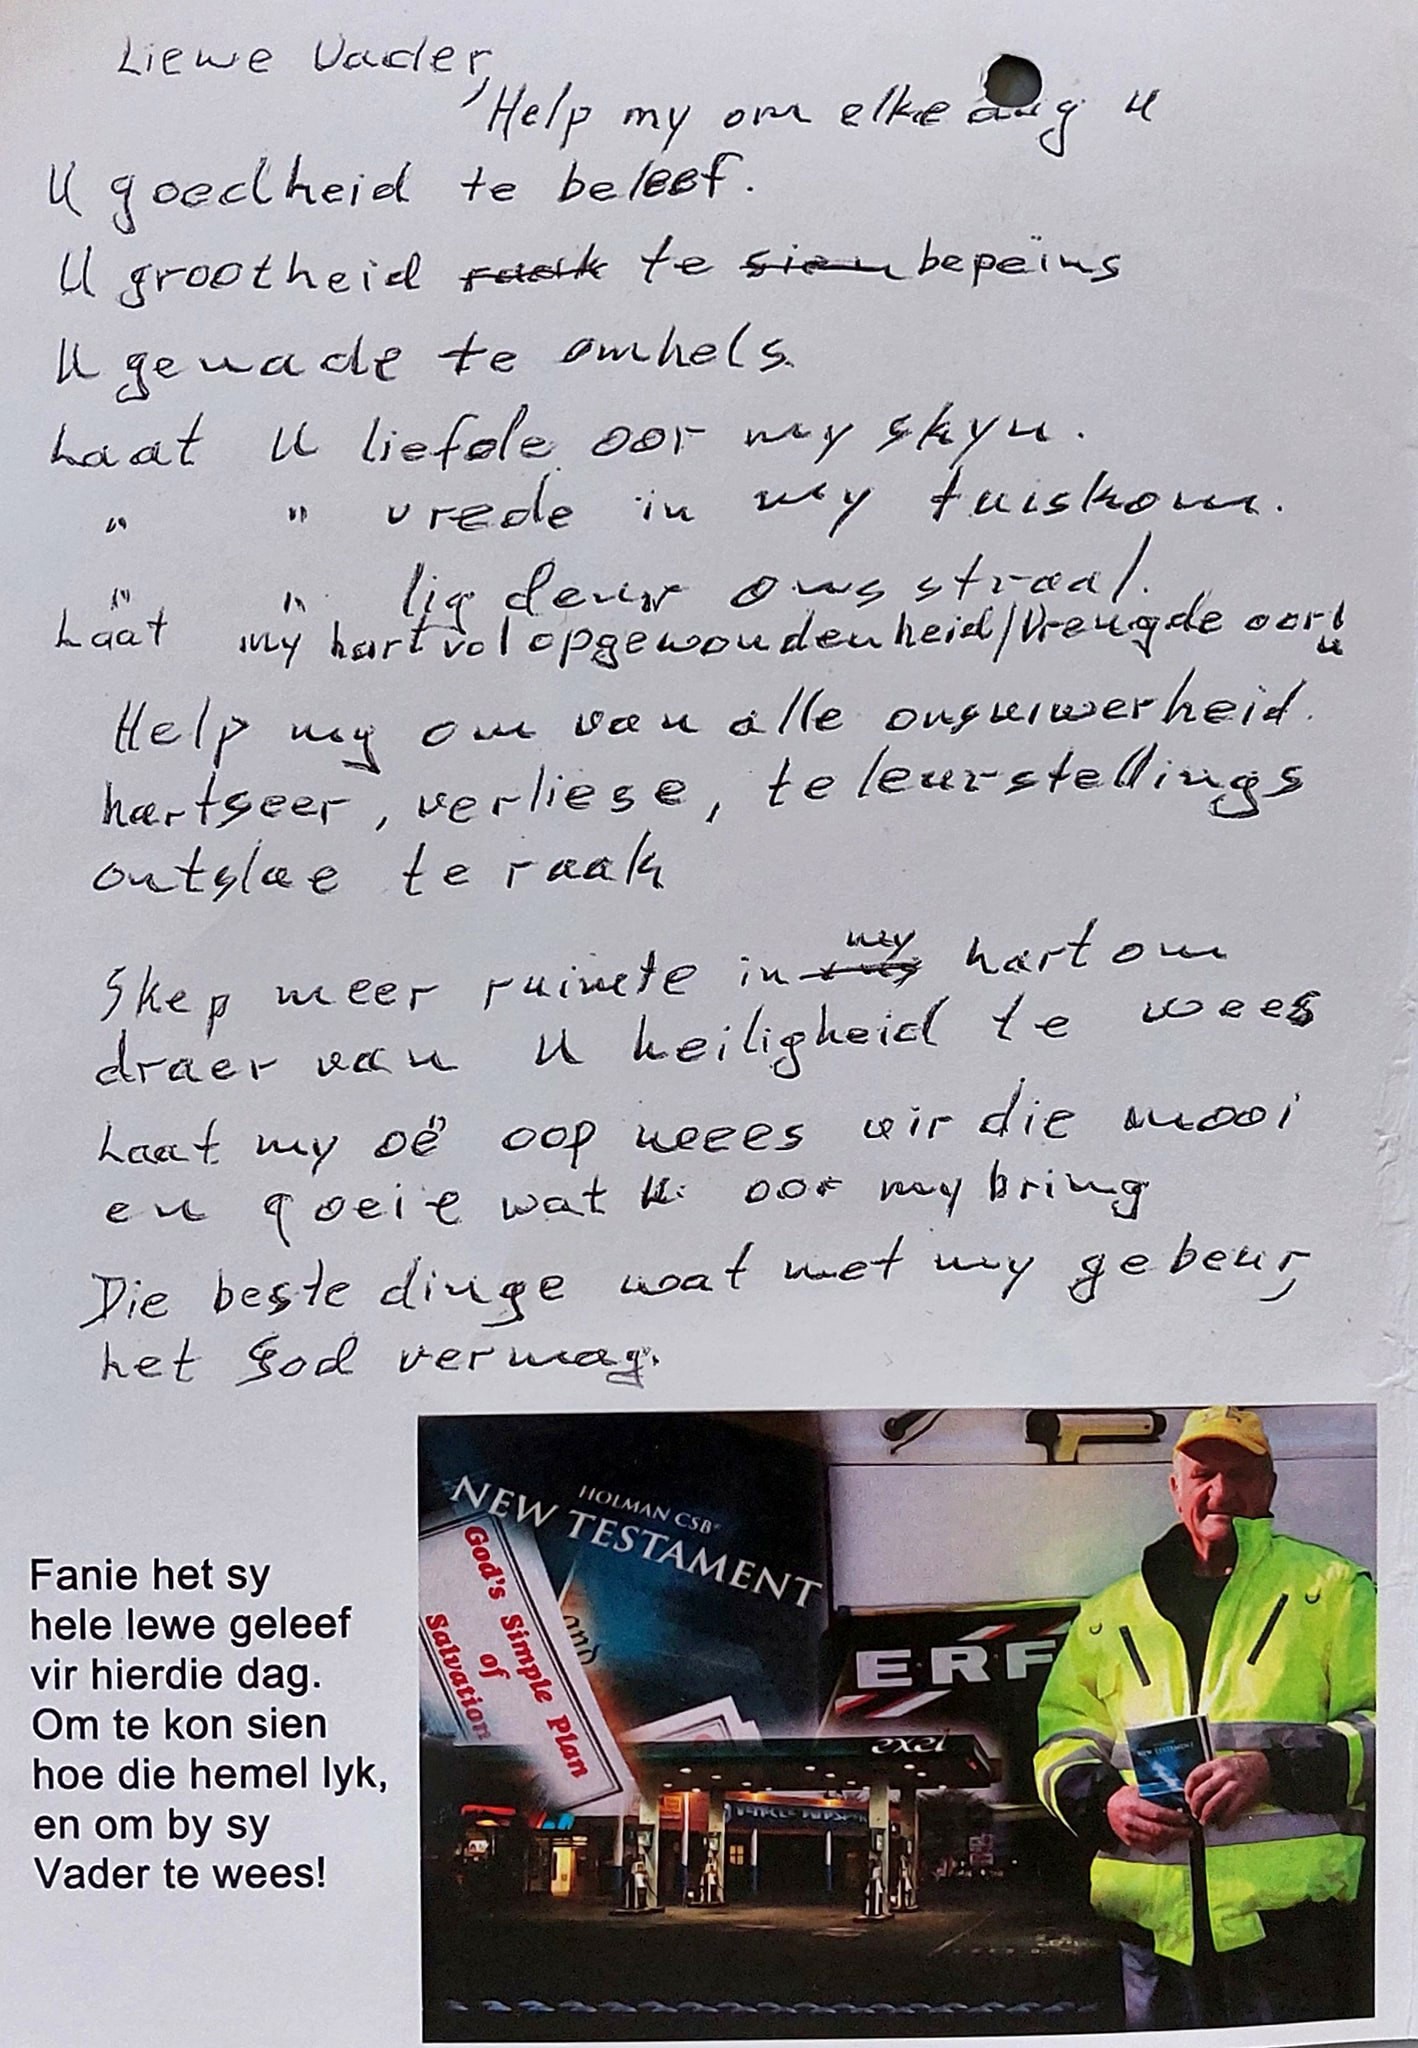 Liewe Vader,
Help my om elke dag U
U goedheid te beleef.
U grootheid raak te sien bepeïns
U genade te omhels.
Laat U liefde oor my skyn.
" " vrede in my tuiskom.
" " lig deur ons straal.
Laat my hart vol opgewondenheid/Vreugde oor U
Help my om van alle onsuiwerheid.
hartseer, verliese, teleurstellings
ontslae te raak
Skep meer ruimte in my hart om
draer van U heiligheid te wees
Laat my oë oop wees vir die mooi
en goeie wat U oor my bring
Die beste dinge wat met my gebeur,
het God vermag.
Fanie het sy
hele lewe geleef
vir hierdie dag.
Om te kon sien
hoe die hemel lyk,
en om by sy
Vader te wees!
HOLMAN CSB
NEW TESTAMENT
God's Simple Plan
of
Salvation
and
ERF
exel
NEW TESTAMENT